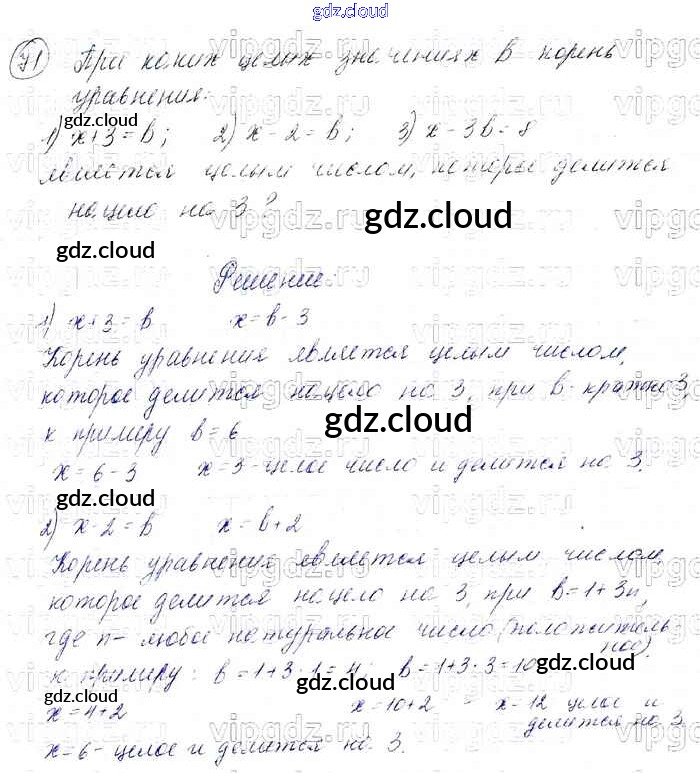 gdz.cloud
71 При каких целых значениях b корень
уравнения:
gdz.cloud
1) x+3=b; 2) x-2=b; 3) x-3b=8
является целым числом, которое делится
нацело на 3?
gdz.cloud
gdz.cloud
Решение
1) x+3=b x=b-3
Корень уравнения является целым числом,
которое делится нацело на 3, при b-кратно 3,
к примеру b=6
gdz.cloud
x=6-3 x=3-целое число и делится на 3.
gdz.cloud
2) x-2=b x=b+2
Корень уравнения является целым числом,
которое делится нацело на 3, при b=1+3n,
где n- любое натуральное число (положитель-
ное).
к примеру: b=1+3·1=4; b=1+3·3=10
gdz.cloud
gdz.cloud
gdz.cloud
x=4+2 x=10+2 - x-12 целое и
делится на 3.
x=6-целое и делится на 3.